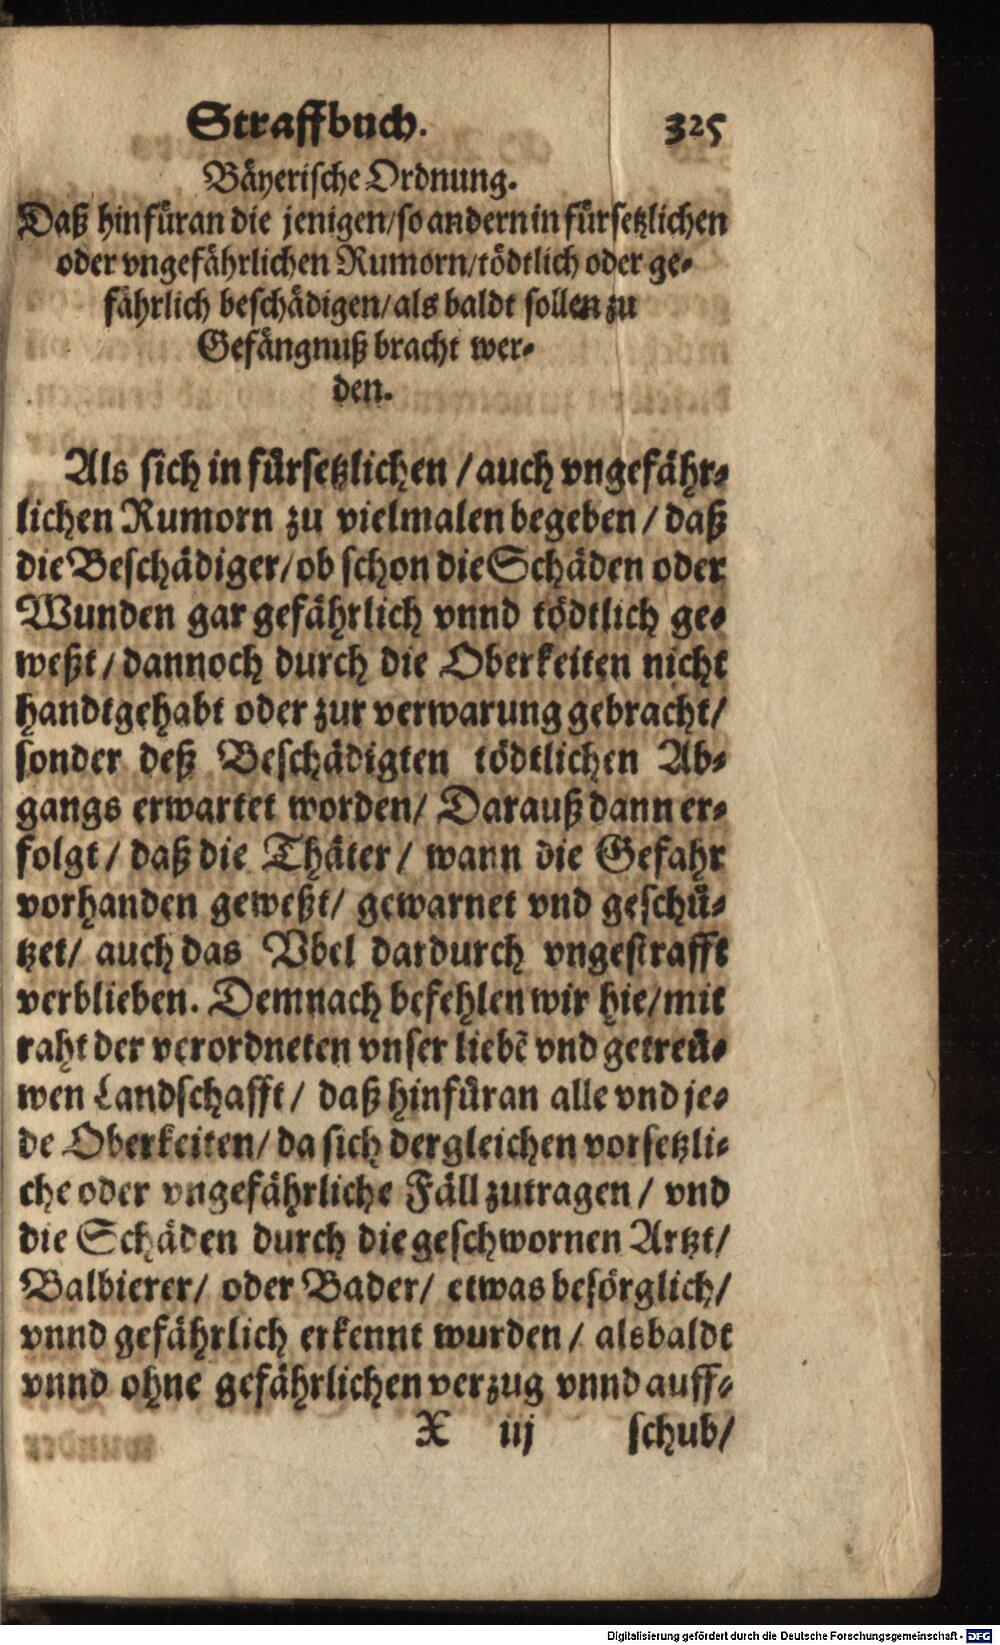 Straffbuch. 325
Bäyerische Ordnung.
Daß hinfüran die jenigen/so andern in fürsetzlichen
oder vngefährlichen Rumorn/tödtlich oder ge-
fährlich beschädigen/als baldt sollen zu
Gefängnuß bracht wer-
den.
Als sich in fürsetzlichen / auch vngefähr-
lichen Rumorn zu vielmalen begeben / daß
die Beschädiger/ob schon die Schäden oder
Wunden gar gefährlich vnnd tödtlich ge-
weßt / dannoch durch die Oberkeiten nicht
handtgehabt oder zur verwarung gebracht/
sonder deß Beschädigten tödtlichen Ab-
gangs erwartet worden/ Darauß dann er-
folgt / daß die Thäter / wann die Gefahr
vorhanden geweßt/ gewarnet vnd geschü-
tzet/ auch das Vbel dardurch vngestrafft
verblieben. Demnach befehlen wir hie/mit
raht der verordneten vnser liebẽ vnd getreü-
wen Landschafft / daß hinfüran alle vnd je-
de Oberkeiten/ da sich dergleichen vorsetzli-
che oder vngefährliche Fäll zutragen / vnd
die Schäden durch die geschwornen Artzt/
Balbierer/ oder Bader/ etwas besörglich/
vnnd gefährlich erkennt wurden / alsbaldt
vnnd ohne gefährlichen verzug vnnd auff-
X iij schub/
Digitalisierung gefördert durch die Deutsche Forschungsgemeinschaft - DFG